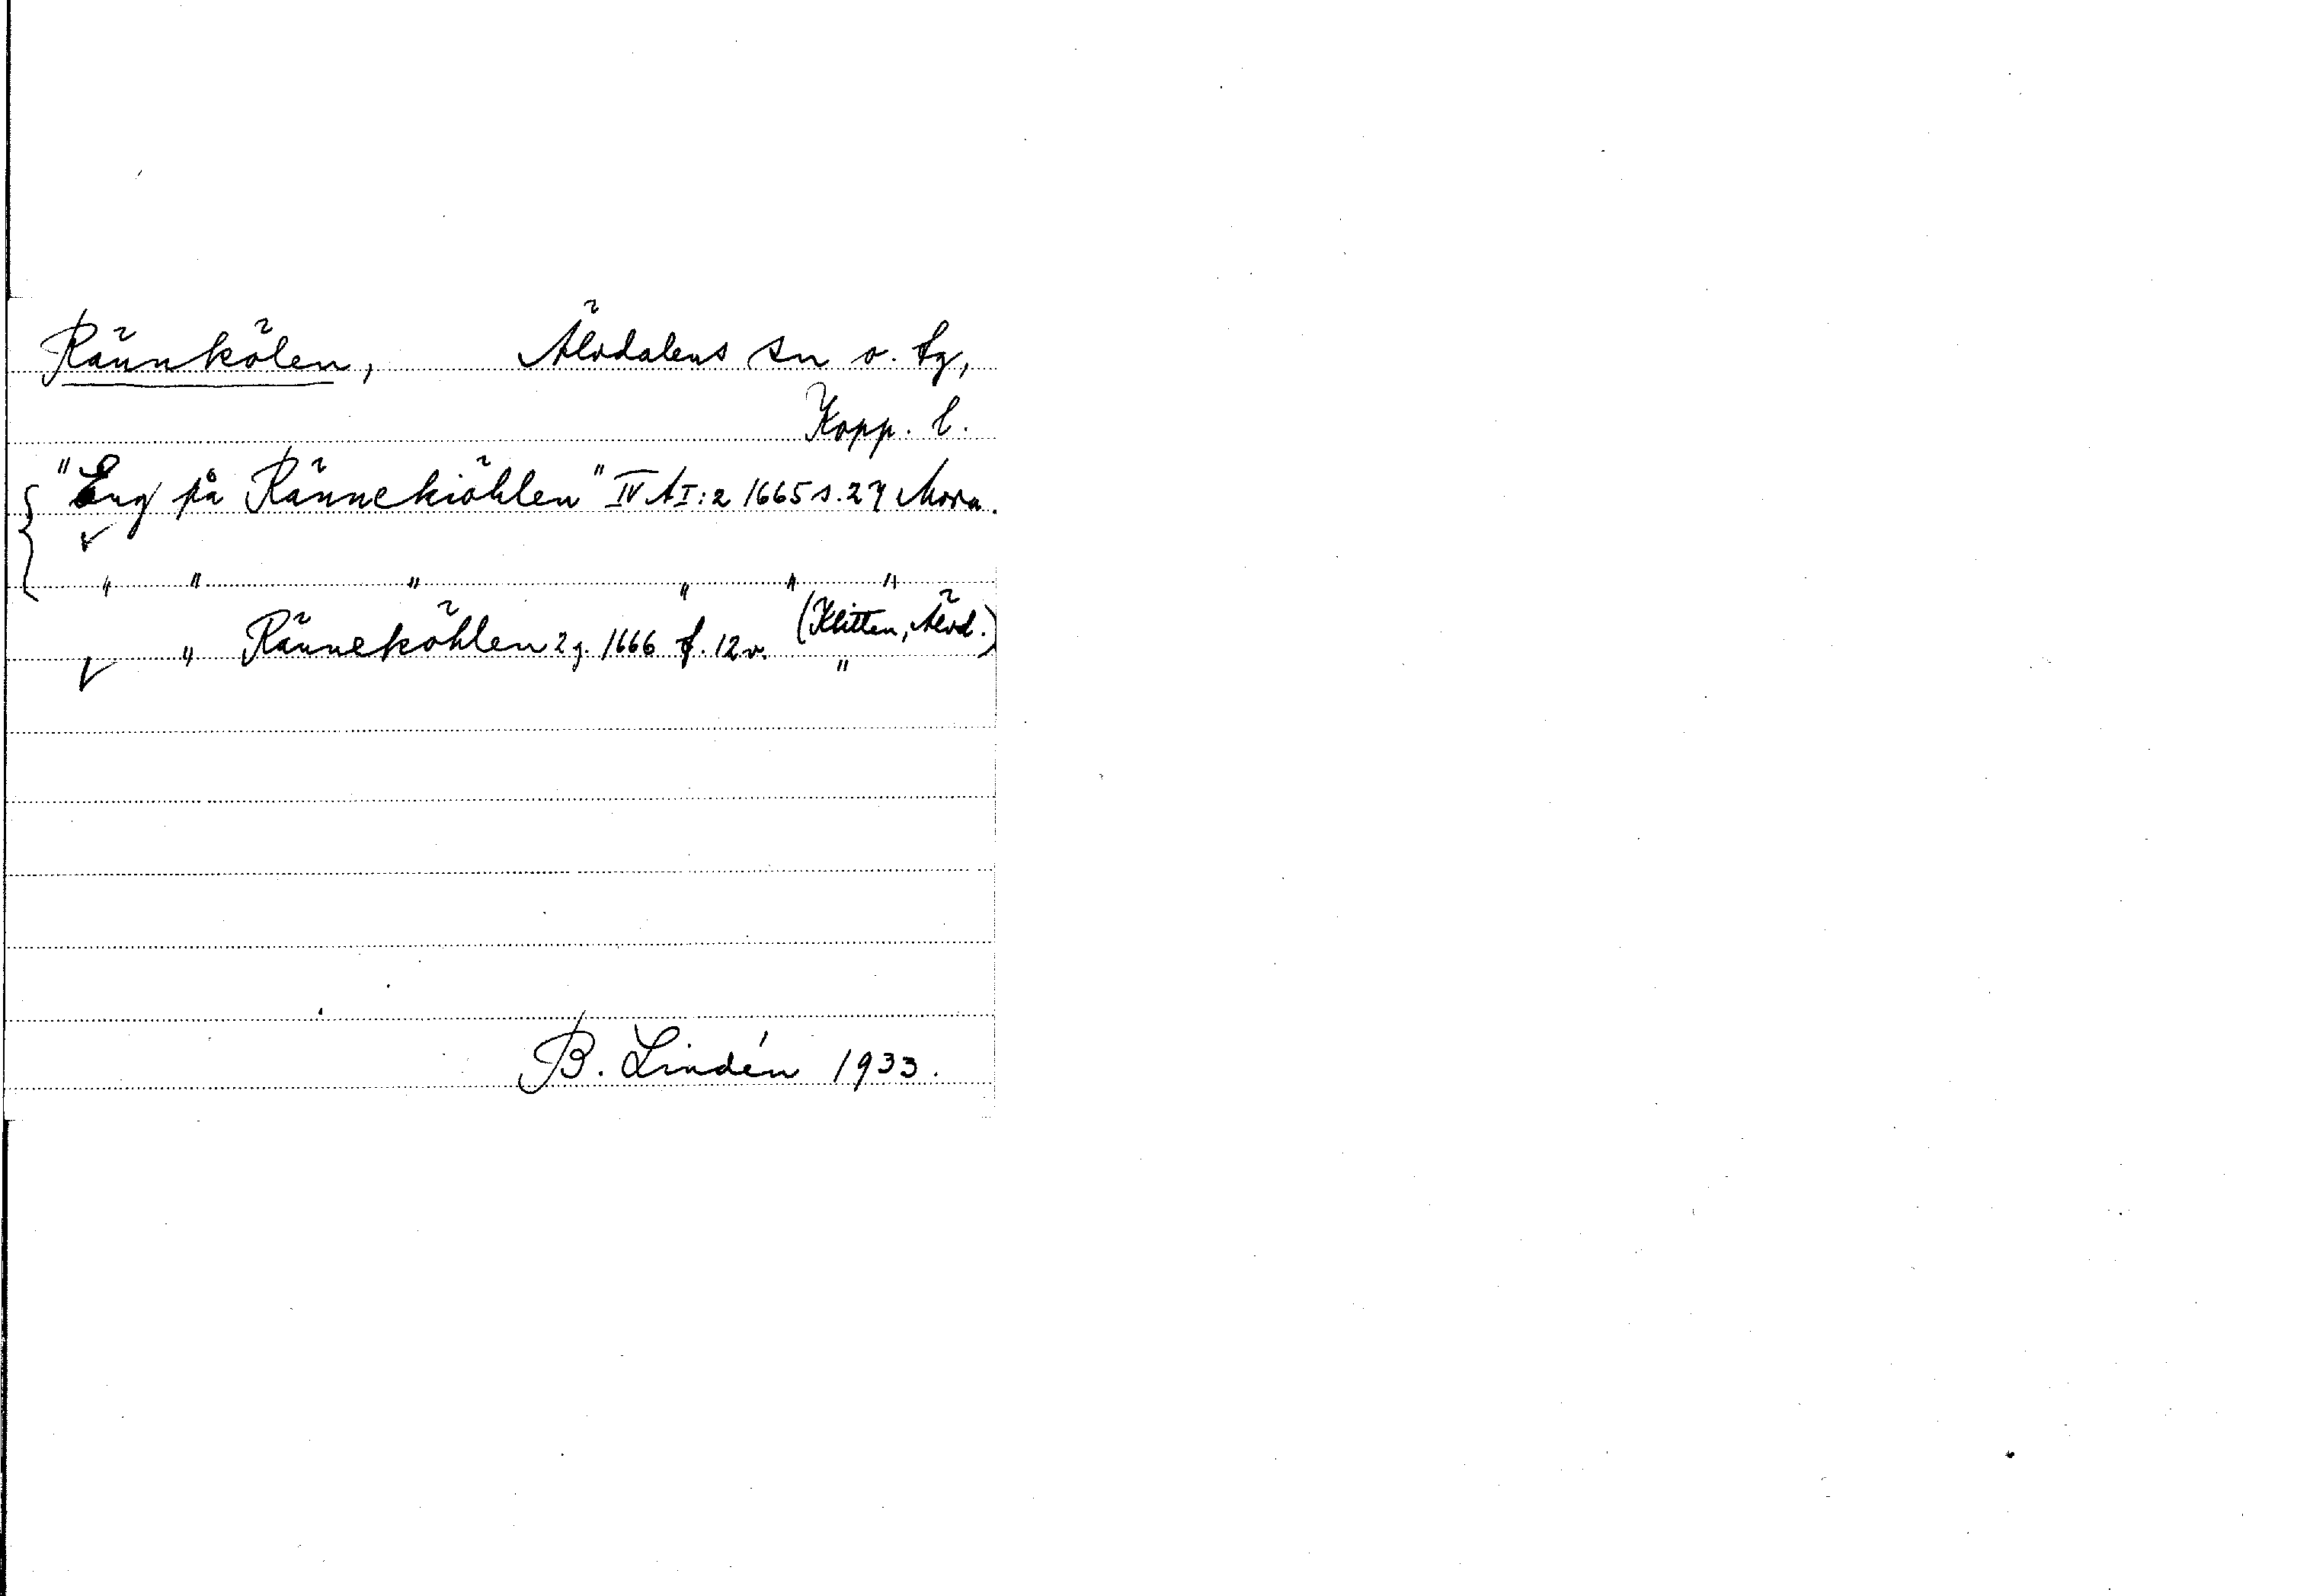 Rännkölen, Älvdalens sn o. tg,
Kopp. l.
"Eng på Rännekiöhlen" IV A I:2 1665 s. 27 Mora.
" " " " " "
(Klitten, Älvd.)
" Rännekőhlen 2 g. 1666 f. 12 v. "
B. Lindén 1933.